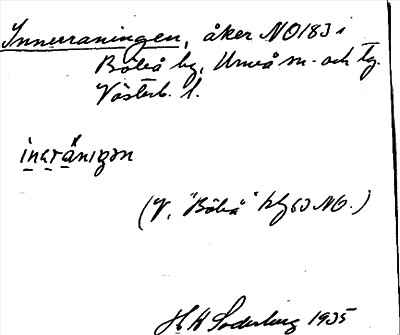 Innerraningen, åker NO183 i
Böleå by, Umeå sn. och tg.
Västerb. l.
inərånıgən
(V. "Böleå" blz 60 NO.)
H. W. Söderberg 1935